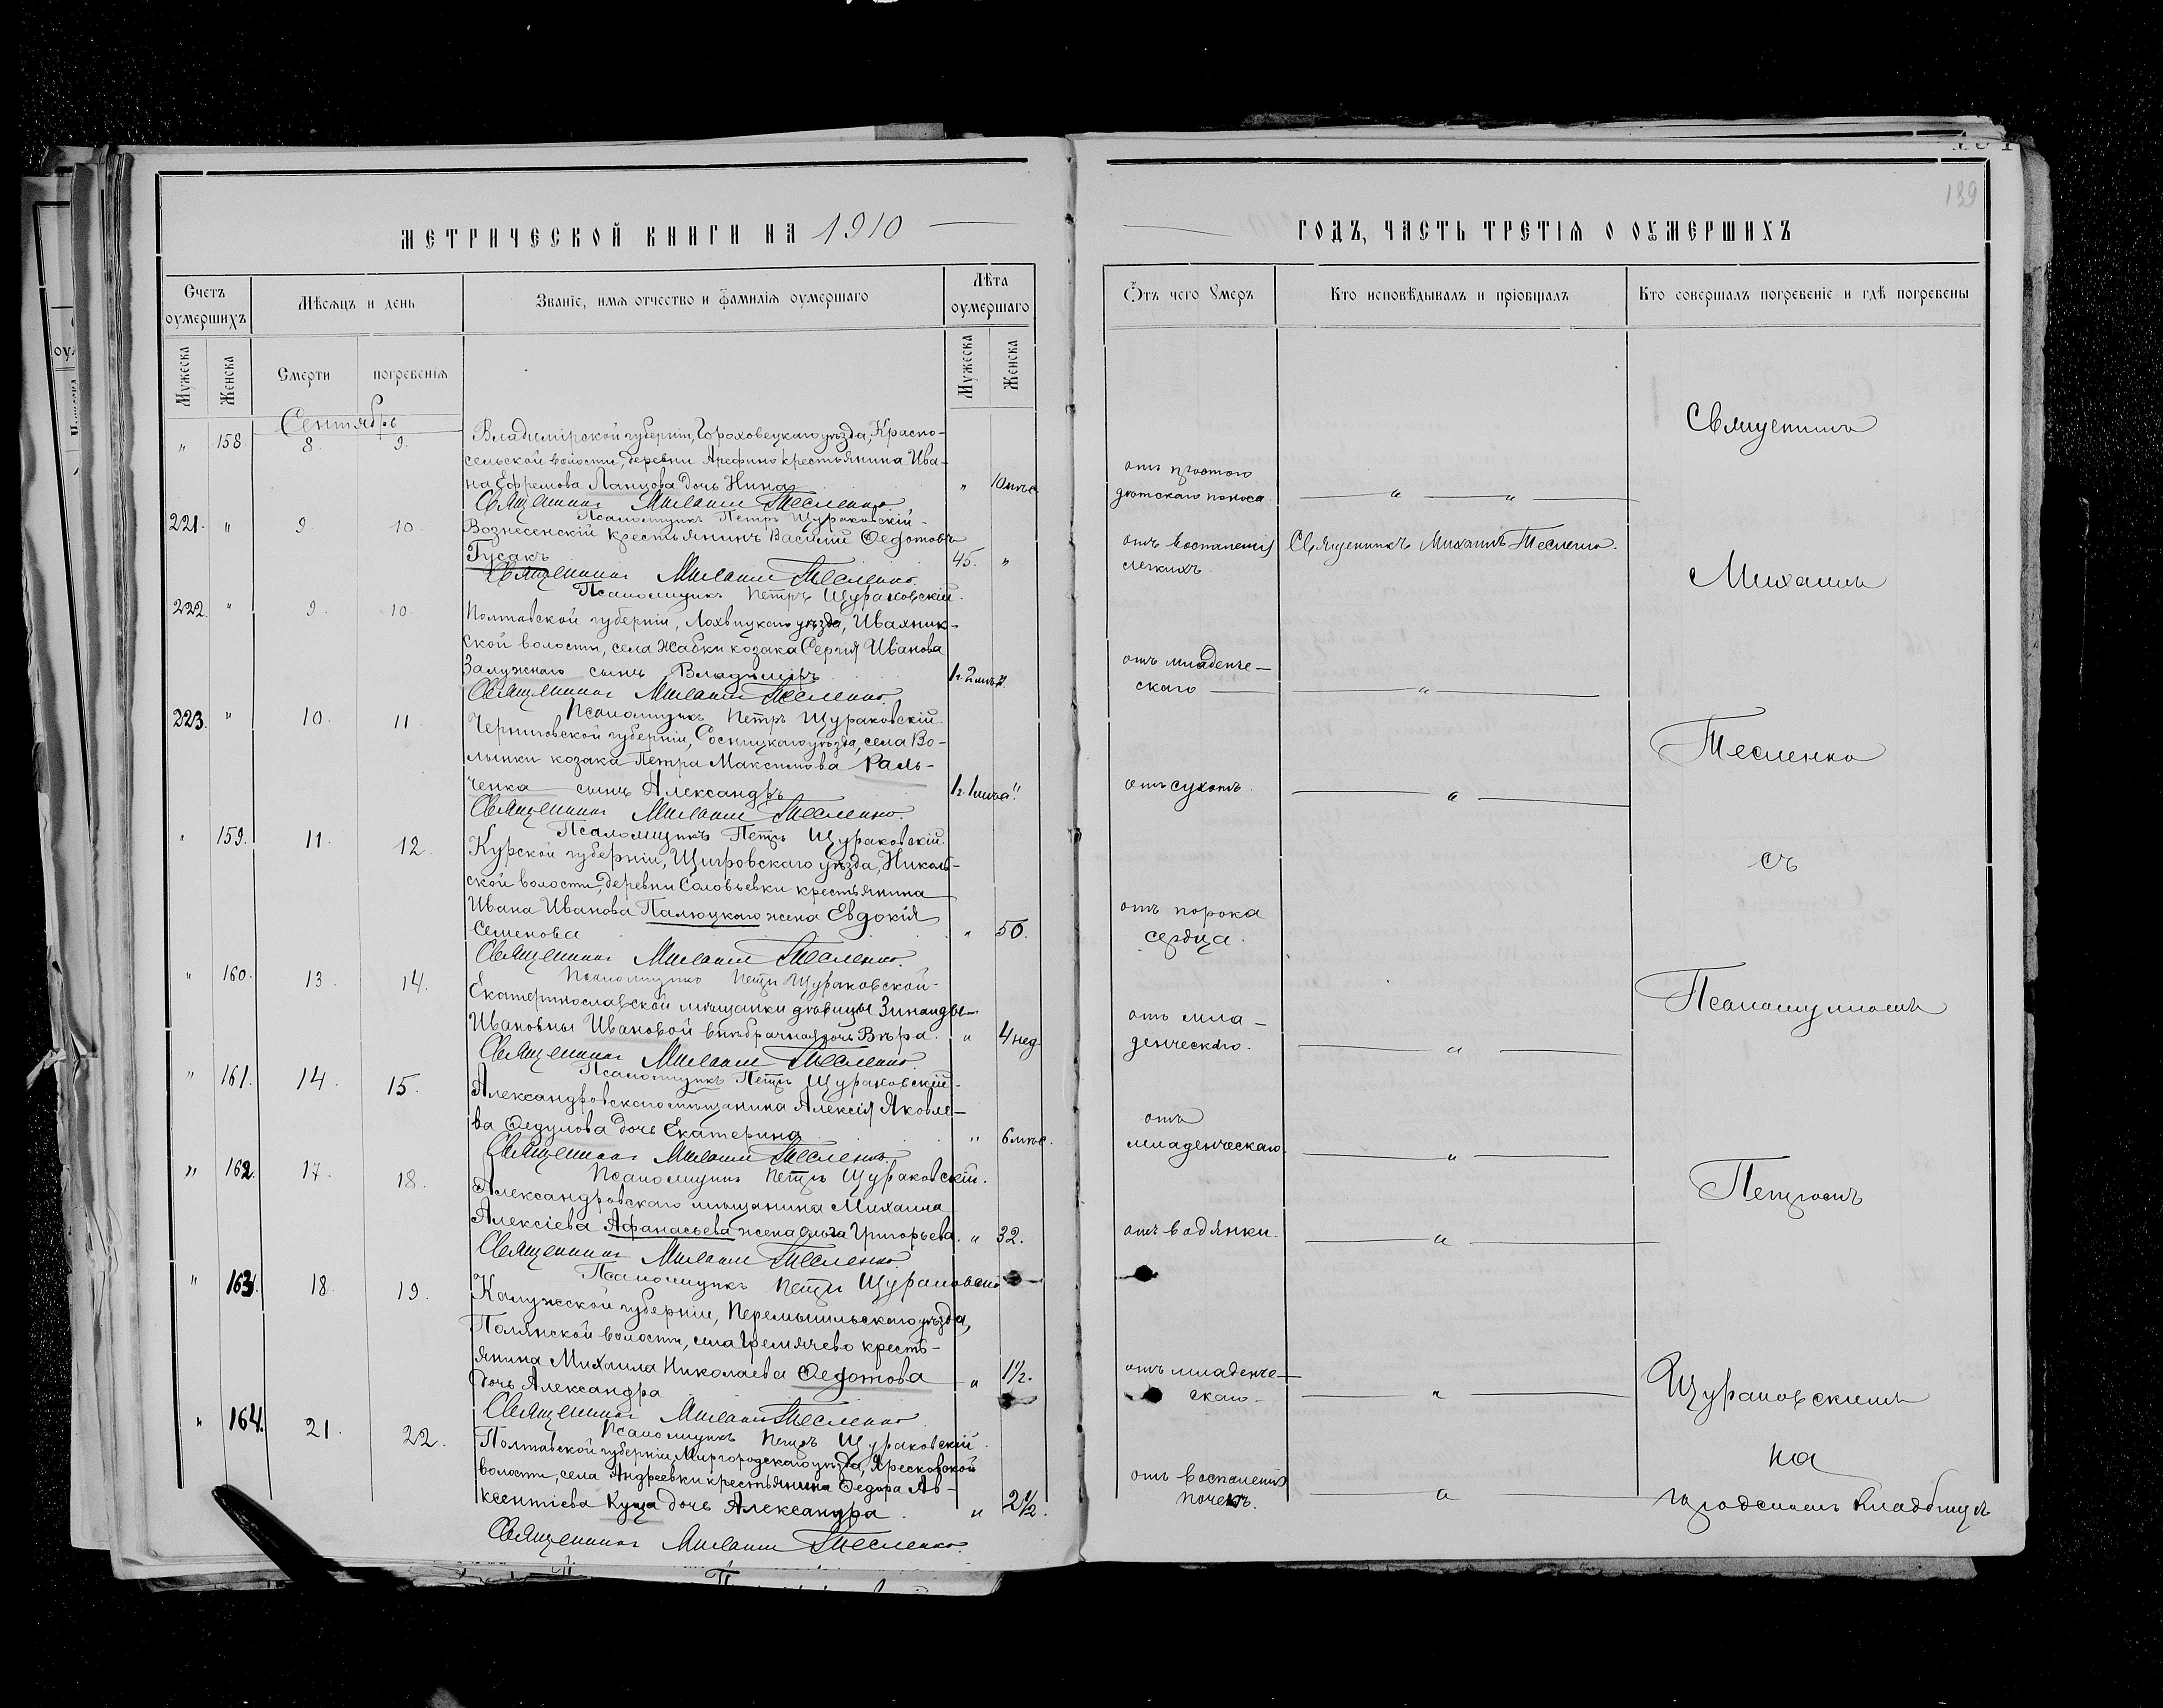 МЕТРИЧЕСКОЙ КНИГИ НА 1910
Счетъ оумершихъ
Мѣсяцъ и день
Званіе, имя отчество и фамилія оумершаго
Лѣта оумершаго
Мужеска
Женска
Смерти
погребенія
Мужеска
Женска
Сентябрь
" 158 8. 9. Владимірской губерніи, Гороховецкаго уѣзда, Красно-
сельской волости, деревни Арефино крестьянина Ива-
на Ефремова Ланцова дочь Нина " 10 мѣс.
Священникъ Михаилъ Тесленко.
Псаломщикъ Петръ Щураковскій.
221. " 9 10. Вознесенскій крестьянинъ Василій Ѳедотовъ
Гусакъ 45. "
Священникъ Михаилъ Тесленко.
Псаломщикъ Петръ Щураковскій.
222. " 9. 10. Полтавской губерніи, Лохвицкаго уѣзда, Ивахник-
ской волости, села Жабки козака Сергія Иванова
Залужнаго сынъ Владиміръ 1 г. 2 мѣс. "
Священникъ Михаилъ Тесленко.
Псаломщикъ Петръ Щураковскій.
223. " 10. 11. Черниговской губерніи, Сосницкаго уѣзда, села Во-
лынки козака Петра Максимова Раль-
ченка сынъ Александръ 1 г. 1 мѣс. "
Священникъ Михаилъ Тесленко.
Псаломщикъ Петръ Щураковскій.
" 159. 11. 12. Курской губерніи, Щигровскаго уѣзда, Николь-
ской волости, деревни Соловьевки крестьянина
Ивана Иванова Палюцкаго жена Евдокія
Семенова " 50.
Священникъ Михаилъ Тесленко.
Псаломщикъ Петръ Щураковской.
" 160. 13. 14. Екатеринославской мѣщанки дѣвицы Зинаиды
Ивановны Ивановой внѣбрачная дочь Вѣра. " 4 нед.
Священникъ Михаилъ Тесленко.
Псаломщикъ Петръ Щураковскій.
" 161. 14. 15. Александровскаго мѣщанина Алексія Яковле-
ва Ѳедулова дочь Екатерина " 6 мѣс.
Священникъ Михаилъ Тесленко.
Псаломщикъ Петръ Щураковскій.
" 162. 17. 18. Александровскаго мѣщанина Михаила
Алексіева Афанасьева жена Ольга Григорьева. " 32.
Священникъ Михаилъ Тесленко.
Псаломщикъ Петръ Щураковскій
" 163. 18. 19. Калужской губерніи, Перемышльскаго уѣзда,
Полянской волости, села Гремячево кресть-
янина Михаила Николаева Ѳедотова " 1½.
дочь Александра
Священникъ Михаилъ Тесленко
Псаломщикъ Петръ Щураковскій.
" 164. 21. 22. Полтавской губерніи, Миргородскаго уѣзда, Яресковской
волости, села Андреевки крестьянина Ѳедора Ав-
ксентіева Куща дочь Александра. " 2½.
Священникъ Михаилъ Тесленко.
139
ГОДЪ, ЧАСТЬ ТРЕТІЯ О ОУМЕРШИХЪ
Ѿтъ чего Умеръ
Кто исповѣдывалъ и пріобщалъ
Кто совершалъ погребеніе и гдѣ погребены
отъ простого
дѣтскаго поноса.
" "
отъ воспаленія
легкихъ
Священникъ Михаилъ Тесленко.
отъ младенче-
скаго
"
отъ сухотъ.
"
отъ порока
сердца.
отъ мла-
денческаго.
"
отъ
младенческаго.
"
отъ водянки.
"
отъ младенче-
скаго.
"
отъ воспаленія
почекъ.
"
Священникъ
Михаилъ
Тесленко
съ
Псаломщикомъ
Петромъ
Щураковскимъ
на
городскомъ кладбищѣ